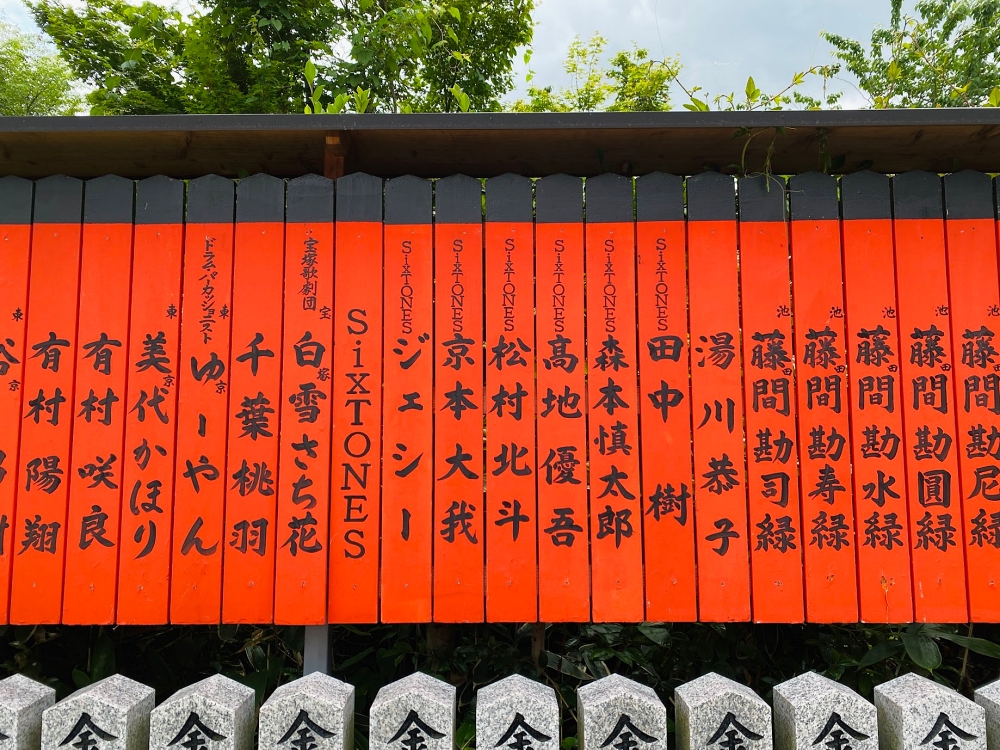 池田 藤間勘尼緑
池田 藤間勘圓緑
池田 藤間勘水緑
池田 藤間勘寿緑
池田 藤間勘司緑
湯川恭子
SixTONES 田中樹
SixTONES 森本慎太郎
SixTONES 高地優吾
SixTONES 松村北斗
SixTONES 京本大我
SixTONES ジェシー
SixTONES
宝塚歌劇団 宝塚 白雪さち花
千葉桃羽
ドラム・パーカッショニスト 東京 ゆーやん
東京 美代かほり
有村咲良
有村陽翔
東京
金
金
金
金
金
金
金
金
金